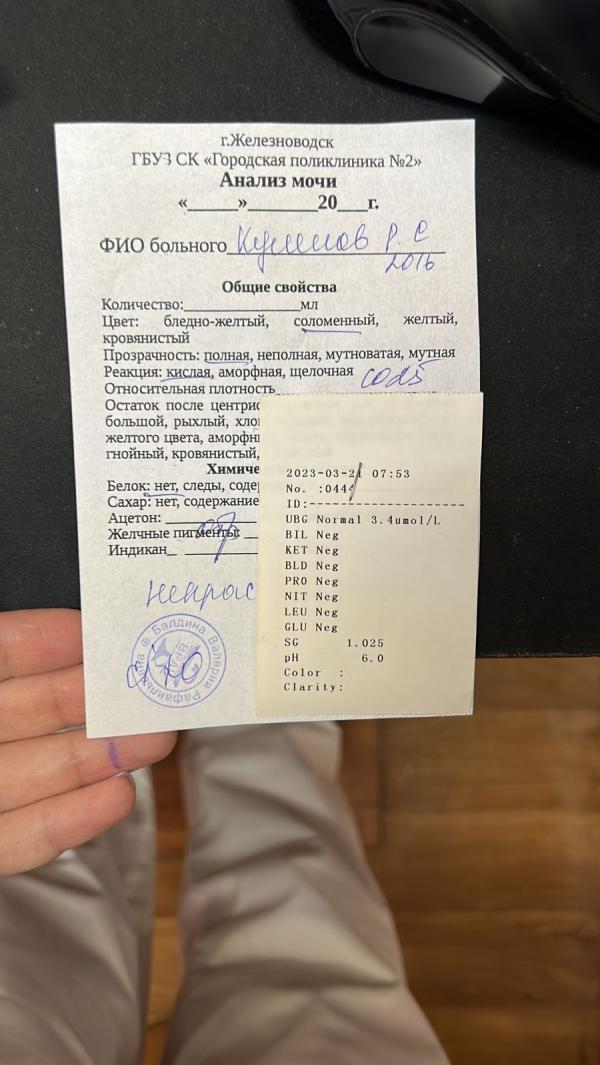 г.Железноводск
ГБУЗ СК «Городская поликлиника №2»
Анализ мочи
«_____»_______20___г.
ФИО больного Р. С
2016
Общие свойства
Количество:____________мл
Цвет: бледно-желтый, соломенный, желтый,
кровянистый
Прозрачность: полная, неполная, мутноватая, мутная
Реакция: кислая, аморфная, щелочная
Относительная плотность
Остаток после центри
большой, рыхлый,
желтого цвета, аморфн
гнойный, кровянистый,
Химиче
Белок: нет, следы,
Сахар: нет, содержание
Ацетон:
Желчные пигменты:
Индикан
Балдина Валерия Рафаильевна
ВРАЧ
2023-03-21 07:53
No. :0444
ID:--------------------
UBG Normal 3.4umol/L
BIL Neg
KET Neg
BLD Neg
PRO Neg
NIT Neg
LEU Neg
GLU Neg
SG 1.025
pH 6.0
Color :
Clarity: